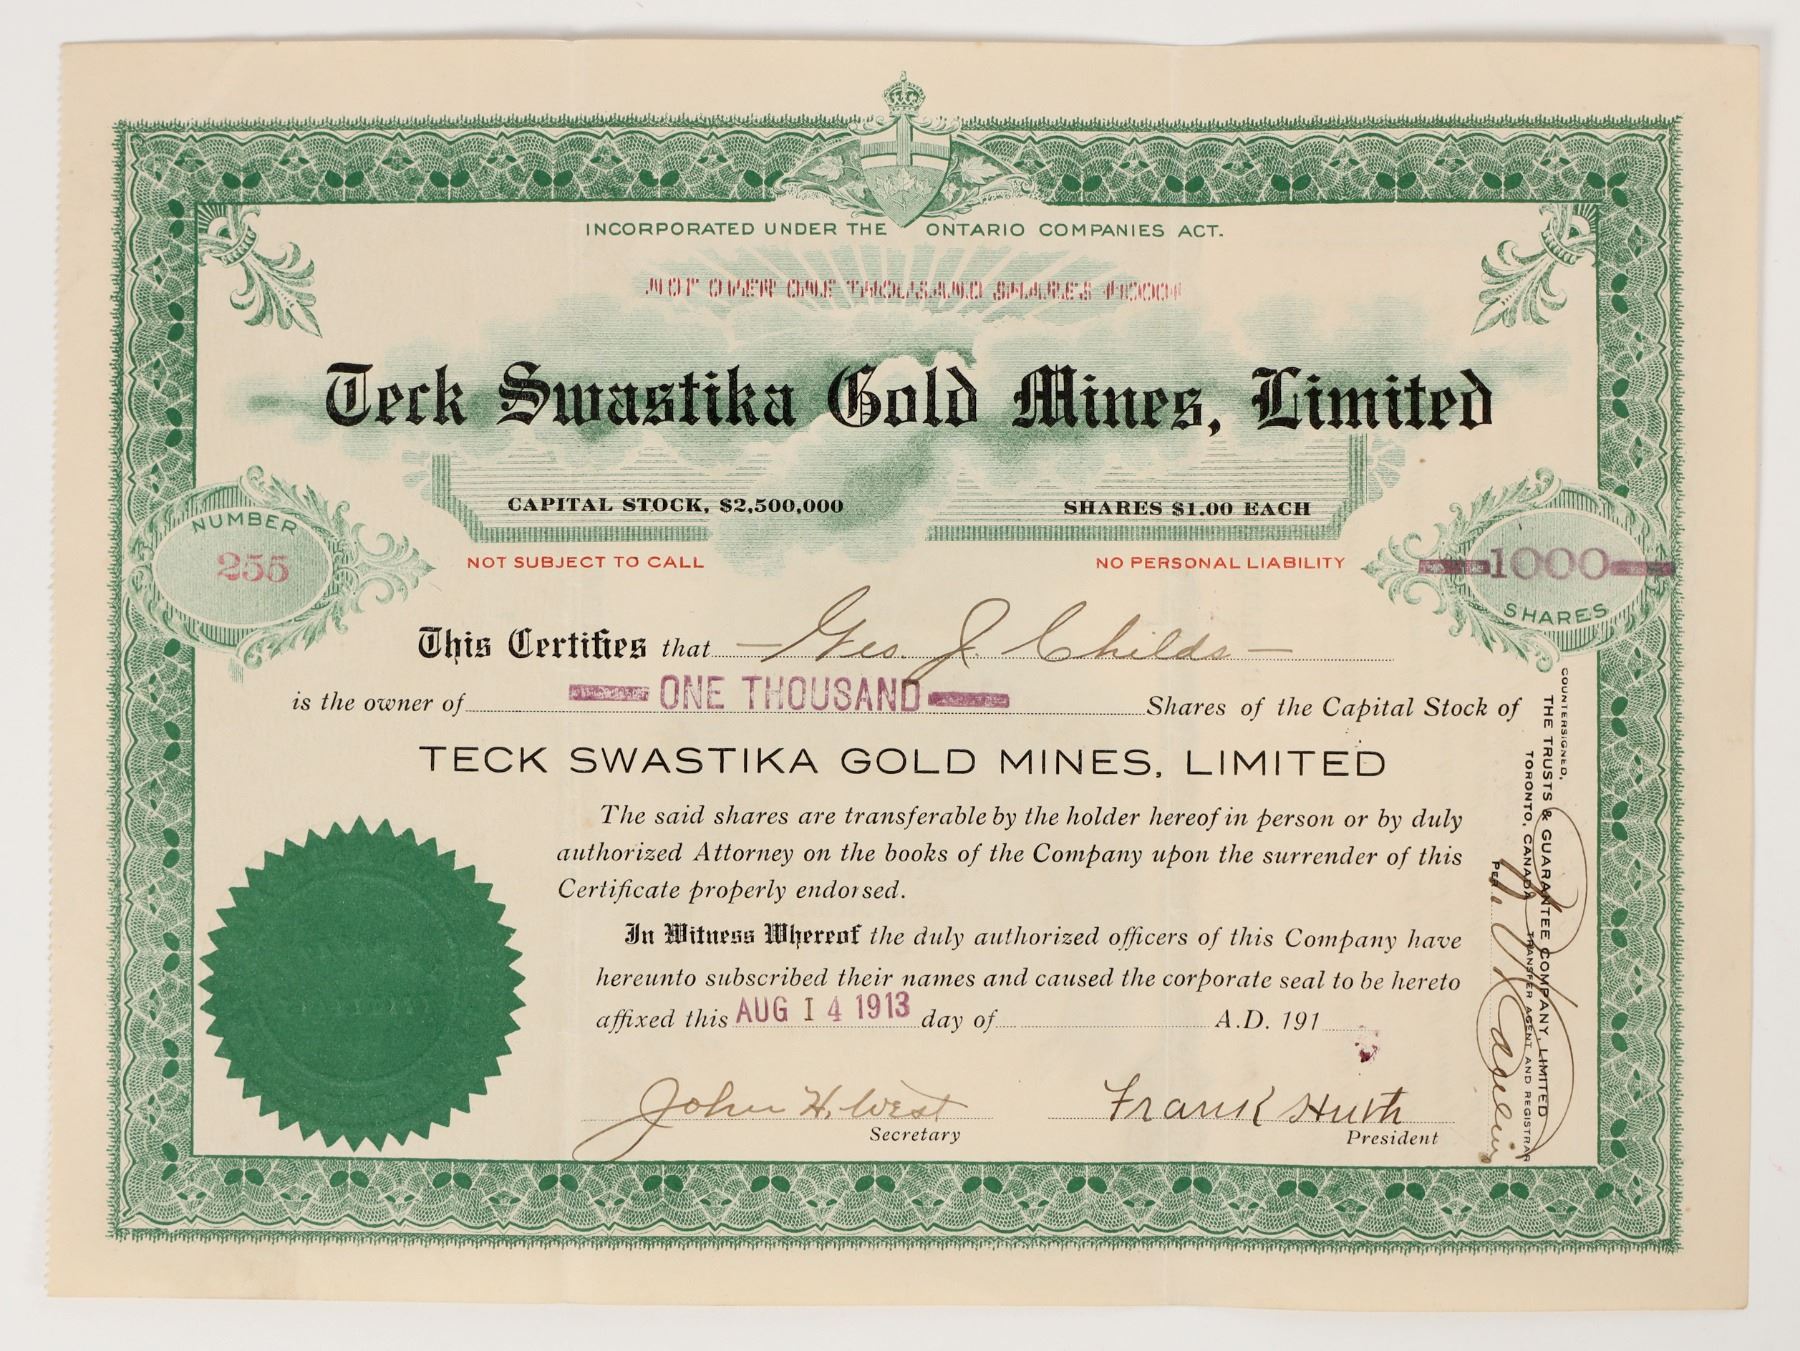 INCORPORATED UNDER THE ONTARIO COMPANIES ACT.
NOT OVER ONE THOUSAND SHARES $1000$
Teck Swastika Gold Mines, Limited
CAPITAL STOCK, $2,500,000 SHARES $1.00 EACH
NUMBER
255
NOT SUBJECT TO CALL NO PERSONAL LIABILITY
1000
SHARES
This Certifies that Geo. J. Childs
is the owner of ONE THOUSAND Shares of the Capital Stock of
TECK SWASTIKA GOLD MINES, LIMITED
The said shares are transferable by the holder hereof in person or by duly
authorized Attorney on the books of the Company upon the surrender of this
Certificate properly endorsed.
In Witness Whereof the duly authorized officers of this Company have
hereunto subscribed their names and caused the corporate seal to be hereto
affixed this AUG 14 1913 day of A.D. 191
John H. West
Secretary
Frank Huth
President
COUNTERSIGNED,
THE TRUSTS & GUARANTEE COMPANY, LIMITED
TORONTO, CANADA TRANSFER AGENT AND REGISTRAR
PER